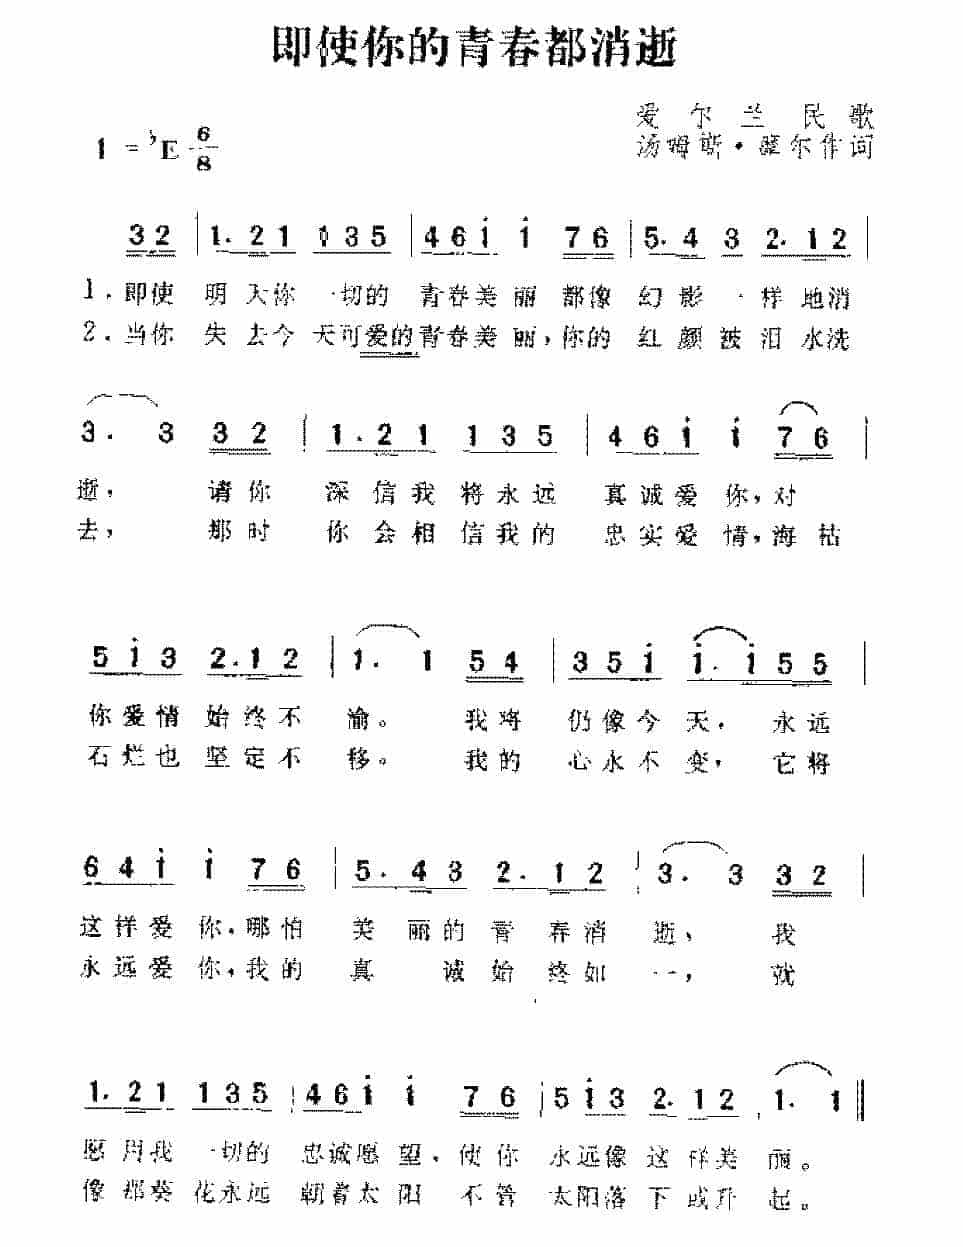 即使你的青春都消逝
爱尔兰民歌
1=♭E 6/8
汤姆斯·莫尔作词
32 | 1.21 135 | 46i i 76 | 5.4 3 2.12 |
1.即使 明天你 一切的 青春美丽都像幻影一样地消
2.当你 失去今天可爱的青春美丽,你的红颜被泪水洗
3. 3 32 | 1.21 135 | 46i i 76 |
逝, 请你 深信我将永远 真诚爱你,对
去, 那时 你会相信我的 忠实爱情,海枯
5i3 2.12 | 1. 1 54 | 35i i.i55 |
你爱情始终不 渝。 我将 仍像今天,永远
石烂也坚定不 移。 我的 心永不变,它将
64i i 76 | 5.43 2.12 | 3. 3 32 |
这样爱你,哪怕 美丽的青春消 逝, 我
永远爱你,我的 真诚始终如 一, 就
1.21 135 | 46i i 76 | 5i3 2.12 | 1. 1 ‖
愿用我 一切的 忠诚愿望,使你 永远像这样美 丽。
像那葵 花永远 朝着太阳 不管 太阳落下或升 起。